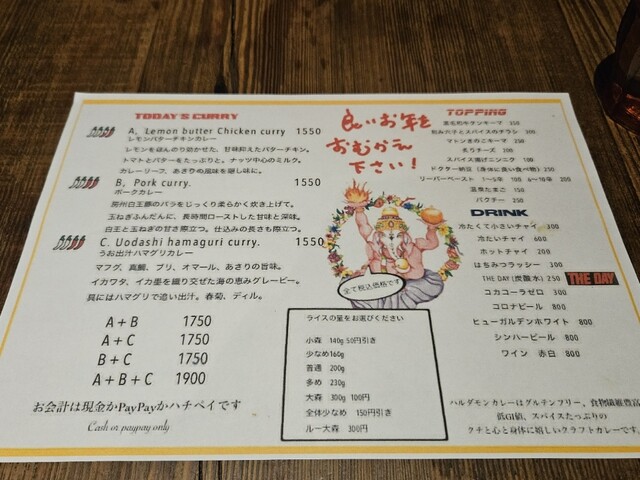 TODAY'S CURRY
A, Lemon butter Chicken curry 1550
レモンバターチキンカレー
レモンをほんのり効かせた、甘味抑えたバターチキン。
トマトとバターをたっぷりと。ナッツ中心のミルク。
カレーリーフ、あさりの風味を隠し味に。
B, Pork curry. 1550
ポークカレー
房州白王豚のバラをじっくり柔らかく炊き上げて。
玉ねぎふんだんに、長時間ローストした甘味と深味。
白王と玉ねぎの甘さ際立つ。仕込みの長さも際立つ。
C. Uodashi hamaguri curry. 1550
うお出汁ハマグリカレー
マフグ、真鯛、ブリ、オマール、あさりの旨味。
イカワタ、イカ墨を織り交ぜた海の恵みグレービー。
具にはハマグリで追い出汁。春菊、ディル。
A+B 1750
A+C 1750
B+C 1750
A+B+C 1900
お会計は現金かPayPayかハチペイです
Cash or paypay only
良いお年を
おむかえ
下さい!
全て税込価格です
ライスの量をお選びください
小森 140g 50円引き
少なめ160g
普通 200g
多め 230g
大森 300g 100円
全体少なめ 150円引き
ルー大森 300円
TOPPING
黒毛和牛タンキーマ 350
包み六子とスパイスのチラシ 200
マトンきのこキーマ 350
炙りチーズ 200
スパイス揚げニンニク 100
ドクター納豆 (身体に良い食べ物) 250
リーパーペースト 1〜5辛 100 6〜10辛 250
温泉たまご 150
パクチー 250
DRINK
冷たくて小さいチャイ 300
冷たいチャイ 600
ホットチャイ 200
はちみつラッシー 300
THE DAY (炭酸水) 250 THE DAY
コカコーラゼロ 300
コロナビール 800
ヒューガルデンホワイト 800
シンハービール 800
ワイン 赤白 800
ハルダモンカレーはグルテンフリー、食物繊維豊富
低GI値、スパイスたっぷりの
クチと心と身体に嬉しいクラフトカレーです。